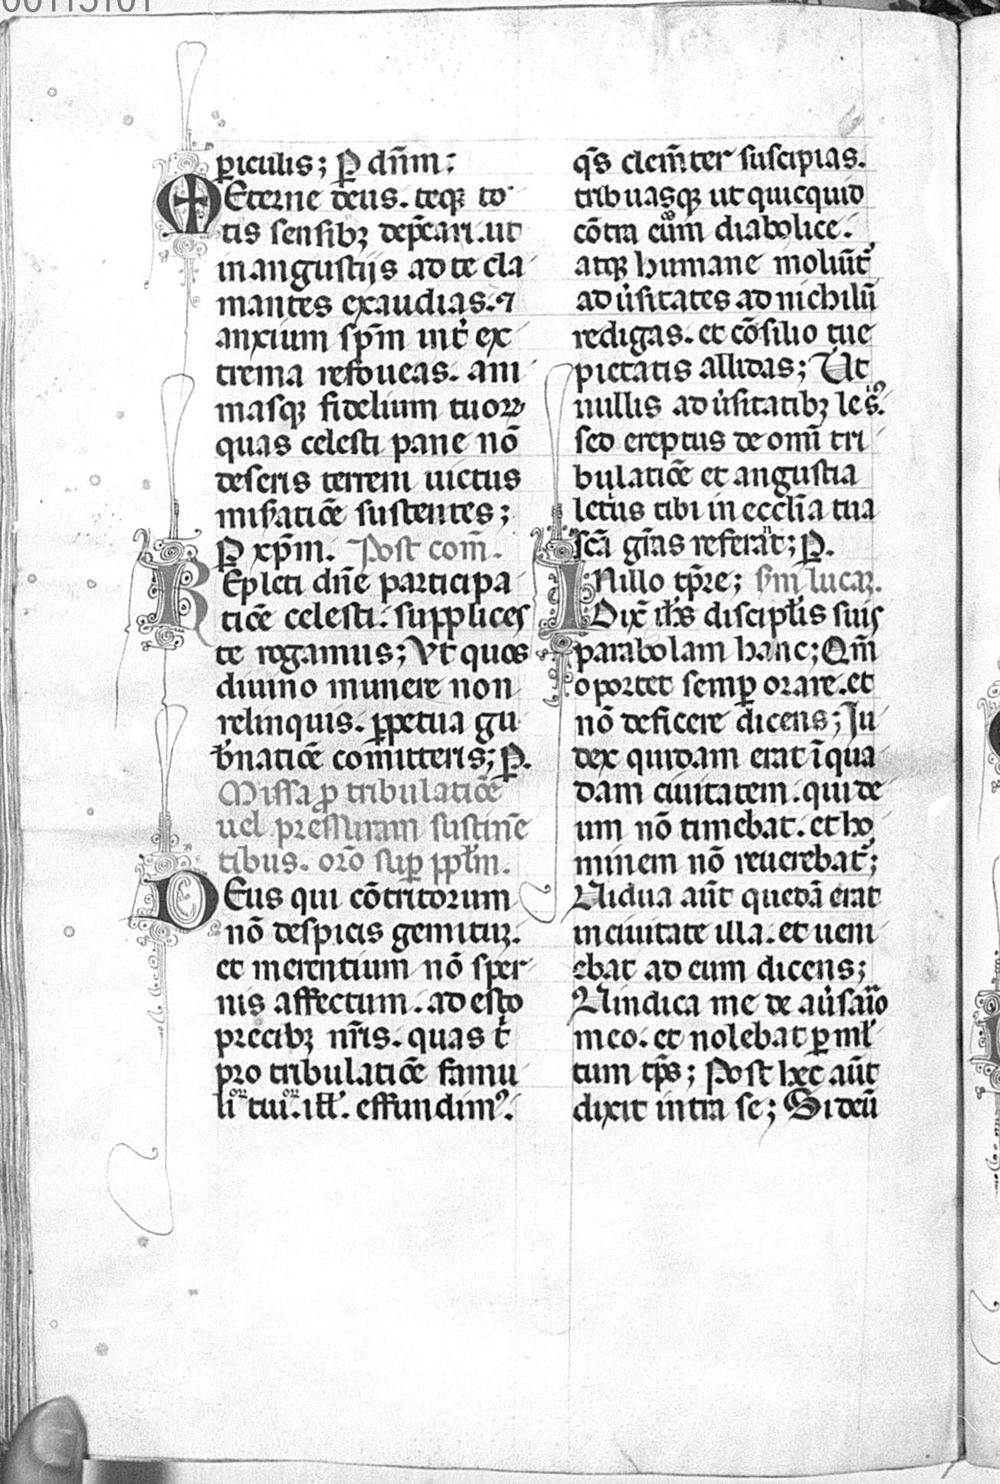 00113101
piculis; P dn̄m;
Eterne deus. teq; to
tis sensibꝫ dep̄cari. ut
in angustijs ad te cla
mantes exaudias. ⁊
anxium sp̄m int̉ ex
trema refoueas. ani
masq; fidelium tuoꝝ
quas celesti pane nō
deseris terreni uictus
mis̉atiōe sustentes;
P xp̄m. Post com̄.
REpleti dn̄e participa
tiōe celesti. supplices
te rogamus; Ut quos
diuino munere non
relinquis. ꝑpetua gu
b̉natiōe comitteris; P.
Missa ꝓ tribulatiōe
uel pressuram sustinē
tibus. orō suꝑ pplm̄.
DEus qui cōtritorum
nō despicis gemitū.
et merentium nō sper
nis affectum. ad esto
precibꝫ nr̄is. quas t̉
pro tribulatiōe famu
loꝝ tuoꝝ. iłł. effundimꝰ.
q̄s clem̄ter suscipias.
tribuasq; ut quicquid
cōtra eum diabolice.
atq; humane moliūt̉
ad ủsitates ad nichilū
redigas. et cōsilio tue
pietatis allidas; Ut
nullis ad ủsitatibꝫ lesꝰ.
sed ereptus de omī tri
bulatiōe et angustia
letus tibi in ecclīa tua
scā gr̄as referat; P.
INillo tp̄re; sm̄ lucā.
Dix̄ ih̄s discipl̄is suis
parabolam hanc; Qm̄
oportet semꝑ orare. et
nō deficere dicens; Ju
dex quidam erat īqua
dam ciuitatem. qui de
um nō timebat. et ho
minem nō reuerebat̉;
Uidua aūt quedā erat
in ciuitate illa. et ueni
ebat ad eum dicens;
Uindica me de aủsario
meo. et nolebat ꝑ ml̉
tum tp̄s; Post hec aūt
dixit intra se; Si deū